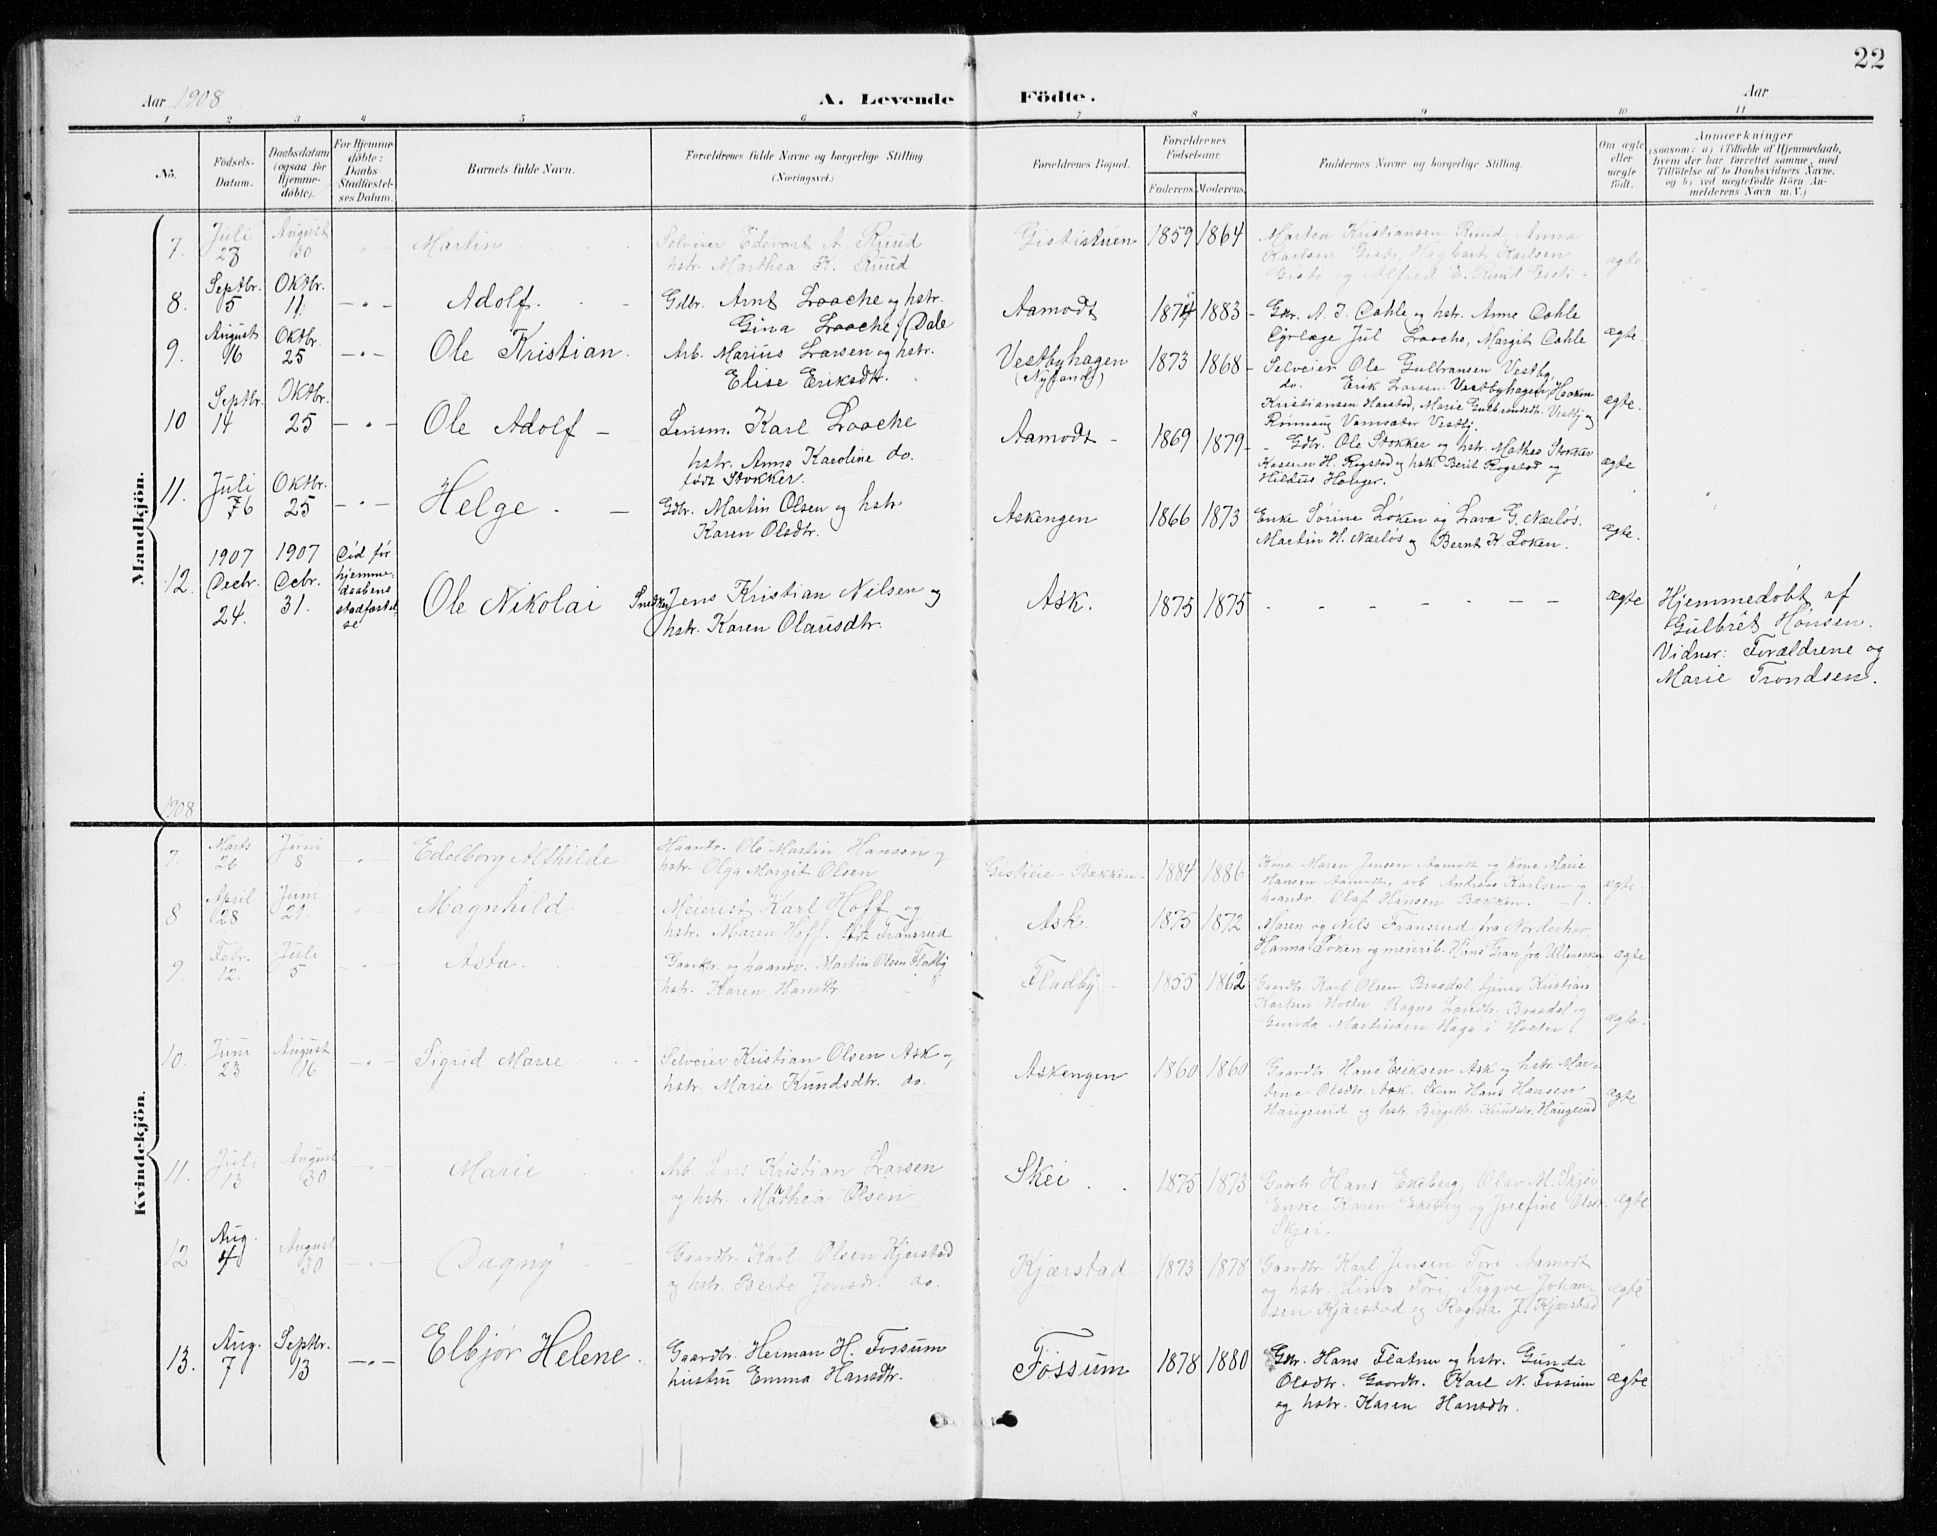 22
Aar 1908
A. Levende Födte.
Aar
1 2 3 4 5 6 7 8 9 10 11
No.
Födsels-Datum.
Daabsdatum (ogsaa for Hjemmedöbte).
For Hjemmedöbte: Daabs-Stadfæstelses Datum.
Barnets fulde Navn.
Forældrenes fulde Navne og borgerlige Stilling. (Næringsvei.)
Forældrenes Bopæl.
Forældrenes Födselsaar.
Faderens. Moderens.
Faddernes Navne og borgerlige Stilling.
Om ægte eller uægte födt.
Anmærkninger
(saasom: a) i Tilfælde af Hjemmedaab, hvem der har forrettet samme, med Tilföielse af to Daabsvidners Navne, og b) ved uægtefödte Börn Anmelderens Navn m. V.)
Mandkjön.
7. Juli 28 August 30 Martin Selveier Edevart A. Ruud Gististuen 1859 1864 Martea Kristiansen Ruud, Anna
hstr. Marthea K. Ruud Karlsen Gisti, Hagbart Karlsen
Gisti og Alfred E. Ruud Gisti - ægte
8. Septbr. 5 Oktbr. 11. Adolf. Gdbr. Arnt Laache og hstr. Aamodt 1874 1883 Gbr. A. J. Dahle og hstr. Anne Dahle
Gina Laache f. Dale Dyrlæge Jul Laache, Margit Dahle ægte.
9. August 16 Oktbr. 25 Ole Kristian. Arb. Marius Larsen og hstr. Vestbyhagen 1873 1868 Selveier Ole Gulbransen Vestby,
Elise Eriksdtr. (Nyland) do. Erik Larsen Vestbyhagen, Haaken
Kristiansen Harstad, Marie Gulbrandsdtr. Vestby og ægte.
Rönnaug Vamsæter Vestby.
10 Septbr. 14 Oktbr. 25 Ole Adolf Lensm. Karl Laache Aamodt 1869 1879 Gdbr. Ole Stokker og hstr. Mathea Stokker
hstr. Anna Karoline do. Kasserer H. Rogstad og hstr. Berit Rogstad og ægte
født Stokker. Hildus Hauger.
11. Juli 26 Oktbr. 25 Helge Gdbr. Martin Olsen og hstr. Askengen 1866 1873 Enke Sørine Løken og Lava G. Nærløs.
Karen Olsdtr. Martin H. Nærløs og Bernt K. Løken. ægte.
12. 1907 Decbr. 24. 1907 Decbr. 31. Død før hjemmedaabens stadfæstelse Ole Nikolai Snedker Jens Kristian Nilsen og Ask. 1875 1875 ægte Hjemmedøbt af
hstr. Karen Olausdtr. Gulbret Hansen.
Vidner: Forældrene og
Marie Trondsen.
1908
Kvindekjön.
7. Marts 26 Juni 8 Edelborg Alfhilde Haandv. Ole Martin Hansen og Gistieie - Bakken 1884 1886 Kone Maren Jensen Aamodt og Kone Marie
hstr. Olga Margit Olsen Hansen Aamodt, arb. Andreas Karlsen og ægte
haandv. Olaf Hansen Bakken.
8. April 28 Juni 21. Magnhild Meierist Karl Hoff og Ask. 1875 1872 Maren og Nils Fransrud fra Norderhov,
hstr. Maren Hoff. født Fransrud Hanna Løken og meierib. Hans Gran fra Ullensaker ægte
9. Febr. 12. Juli 5 Asta. Gaardbr. og haandv. Martin Olsen Fladby Fladby 1855 1862 Gaardbr. Karl Olsen Braadal, tjener Kristian
hstr. Karen Hansdtr. Karlsen Holter, Ragna Braadal og
Gunda Martinsen Haga i Holter. ægte.
10. Juni 23 August 16 Sigrid Marie Selveier Kristian Olsen Ask og Askengen 1860 1860 Gaardbr. Hans Eriksen Ask og hstr. Mar-
hstr. Marie Knudsdtr. do. tine Olsdtr. Ask. Skom. Hans Hansen
Haugerud og hstr. Birgitte Knudsdr. Haugerud ægte
11. Juli 13 August 30 Marie Arb. Lars Kristian Larsen Skei 1875 1873 Gaardbr. Hans Ekeberg, Olav M. Skjei
og hstr. Mathea Olsen Enke Karen Ekeberg og Josefine Olsdtr. ægte
Skjei.
12. Aug. 4 August 30 Dagny Gaardbr. Karl Olsen Kjerstad Kjærstad 1873 1878 Gaardbr. Karl Jensen Tori Aamodt
og hstr. Berte Jensdr. do. og hstr. Lina Tori, Trygve Johan-
sen Kjærstad og Ragna J. Kjærstad ægte
13. Aug. 7 Septbr. 13 Elbjør Helene. Gaardbr. Herman H. Fossum Fossum 1878 1880 Gbr. Hans Flatner og hstr. Gunda
hustru Emma Hansdtr. Olsdtr. Gaardbr. Karl N. Fossum ægte
og hstr. Karen Hansdtr.